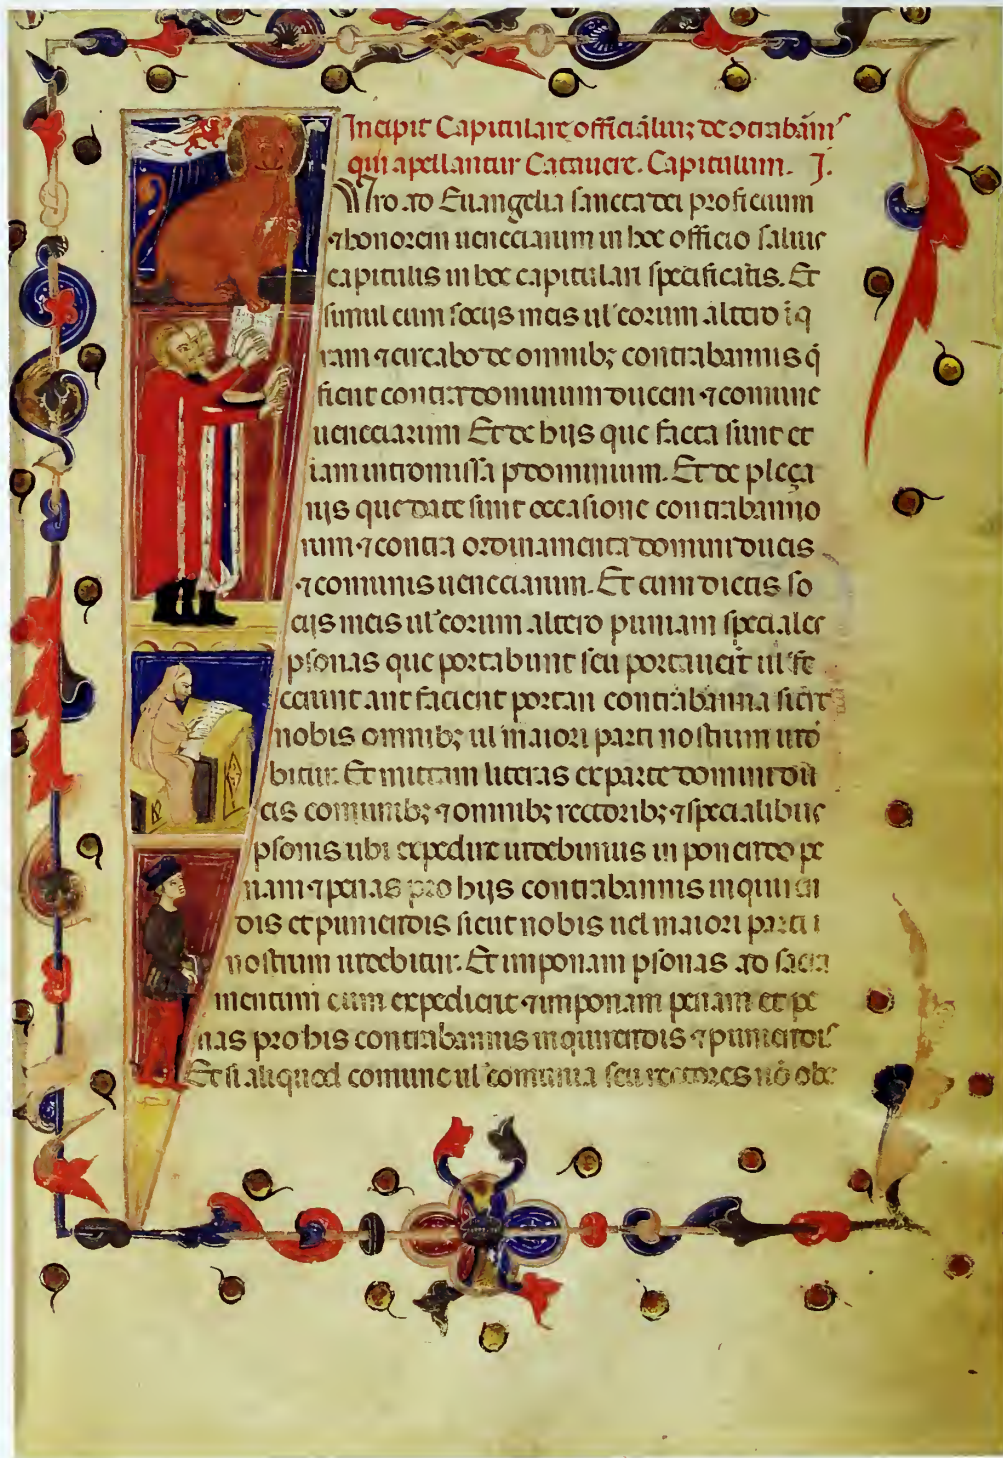 Incipit Capitulare officialiuz de ɔtrabānis
qui apellantur Catauere. Capitulum. J.
Iuro ad Euangelia sancta dei proficuum
⁊ honorem uenetiarum in hoc officio saluis
capitulis in hoc capitulari specificatis. Et
simul cum socijs meis ul' eorum altero īq
ram ⁊ circabo de omnibꝫ contrabannis q̄
fient contra dominum ducem ⁊ comune
uenetiarum Et de hijs que facta sunt et
iam intromissa p dominium. Et de pleça
rijs que date sunt occasione contrabanno
rum ⁊ contra ordinamenta domini ducis
⁊ comunis uenetiarum. Et cum dictis so
cijs meis ul' eorum altero puniam speciales
psonas que portabunt seu portauerīt ul' fe
cerunt aut facient portari contrabanna sicut
nobis omnibꝫ ul' maiori parti nostrum uidē
bitur. Et mittam literas ex parte domini du
cis comunibꝫ ⁊ omnibꝫ rectoribꝫ ⁊ specialibus
psonis ubi expedire uidebimus inponendo pe
nam ⁊ penas pro hijs contrabannis inquiren
dis et puniendis sicut nobis uel maiori parti
nostrum uidebitur. Et imponam psonas ad sacra
mentum cum expedient ⁊ imponam penam et pe
nas pro his contrabannis inquirendis ⁊ puniendis
Et si aliquod comune ul' comunia seu rectores nō obe